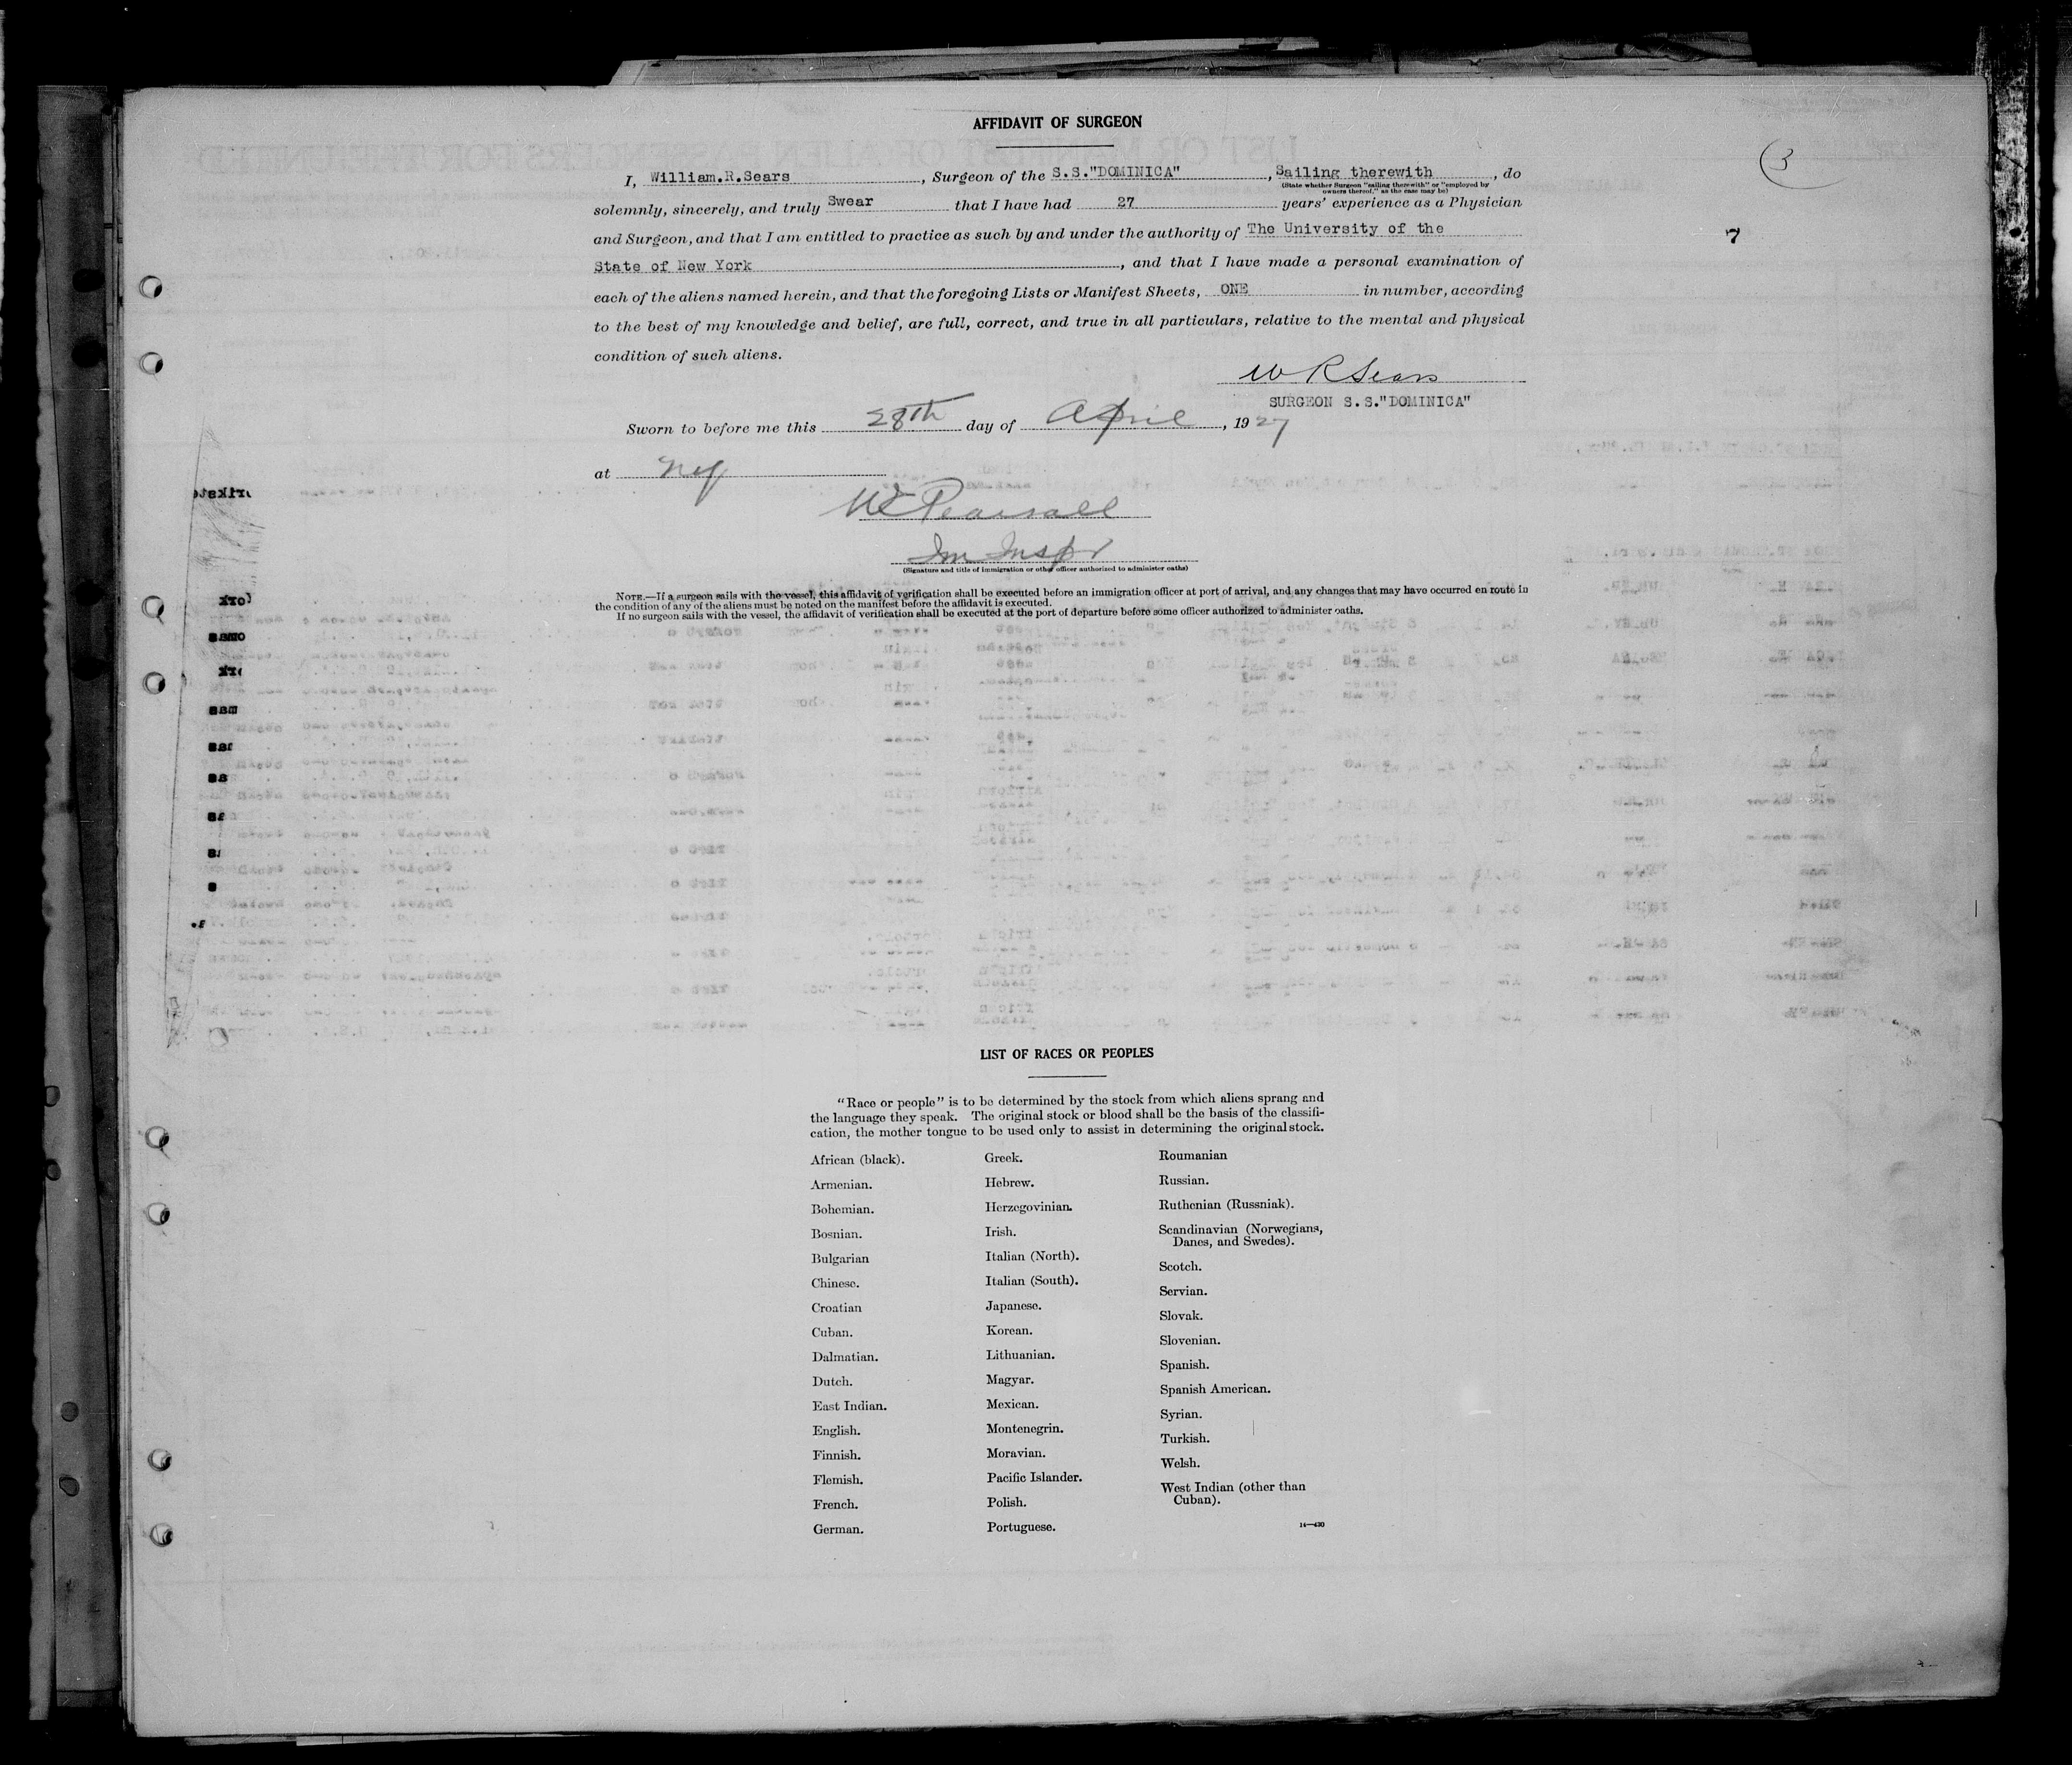 AFFIDAVIT OF SURGEON
3
I, William.R.Sears, Surgeon of the S.S."DOMINICA", Sailing therewith, do
(State whether Surgeon "sailing therewith" or "employed by
owners thereof," as the case may be)
solemnly, sincerely, and truly Swear that I have had 27 years' experience as a Physician
and Surgeon, and that I am entitled to practice as such by and under the authority of The University of the
7
State of New York, and that I have made a personal examination of
each of the aliens named herein, and that the foregoing Lists or Manifest Sheets, ONE in number, according
to the best of my knowledge and belief, are full, correct, and true in all particulars, relative to the mental and physical
condition of such aliens.
W R Sears
SURGEON S.S."DOMINICA"
Sworn to before me this 28th day of April, 1927
at NY
Pearsall
Im Inspr
(Signature and title of immigration or other officer authorized to administer oaths)
NOTE.—If a surgeon sails with the vessel, this affidavit of verification shall be executed before an immigration officer at port of arrival, and any changes that may have occurred en route in
the condition of any of the aliens must be noted on the manifest before the affidavit is executed.
If no surgeon sails with the vessel, the affidavit of verification shall be executed at the port of departure before some officer authorized to administer oaths.
LIST OF RACES OR PEOPLES
"Race or people" is to be determined by the stock from which aliens sprang and
the language they speak. The original stock or blood shall be the basis of the classifi-
cation, the mother tongue to be used only to assist in determining the original stock.
African (black).
Armenian.
Bohemian.
Bosnian.
Bulgarian
Chinese.
Croatian
Cuban.
Dalmatian.
Dutch.
East Indian.
English.
Finnish.
Flemish.
French.
German.
Greek.
Hebrew.
Herzegovinian.
Irish.
Italian (North).
Italian (South).
Japanese.
Korean.
Lithuanian.
Magyar.
Mexican.
Montenegrin.
Moravian.
Pacific Islander.
Polish.
Portuguese.
Roumanian
Russian.
Ruthenian (Russniak).
Scandinavian (Norwegians,
Danes, and Swedes).
Scotch.
Servian.
Slovak.
Slovenian.
Spanish.
Spanish American.
Syrian.
Turkish.
Welsh.
West Indian (other than
Cuban).
14—430